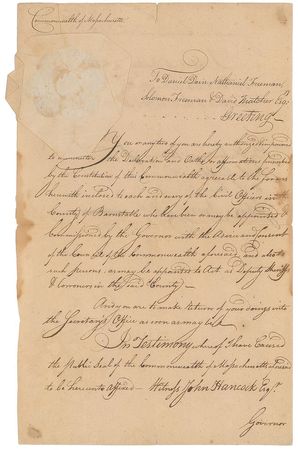 Commonwealth of Massachusetts
To Daniel Davis, Nathaniel Freeman,
Solomon Freeman & David Thatcher Esqrs
Greeting
You or any two of you are hereby authorized & impowered
to administer the Declaration and Oaths or affirmations prescribed
by the Constitution of this Commonwealth agreeable to the forms
herewith inclosed to each and every of the Civil Officers in the
County of Barnstable who have been or may be appointed &
Commissioned by the Governor with the Advice and Consent
of the Council of the Commonwealth aforesaid and also to
such persons as may be appointed to Act as Deputy Sheriffs
& Coroners in the said County
And you are to make return of your doings into
the Secretary's Office as soon as may be
In Testimony whereof I have Caused
the Public Seal of the Commonwealth of Massachusetts aforesaid
to be hereunto affixed Witness John Hancock Esqr.
Governor